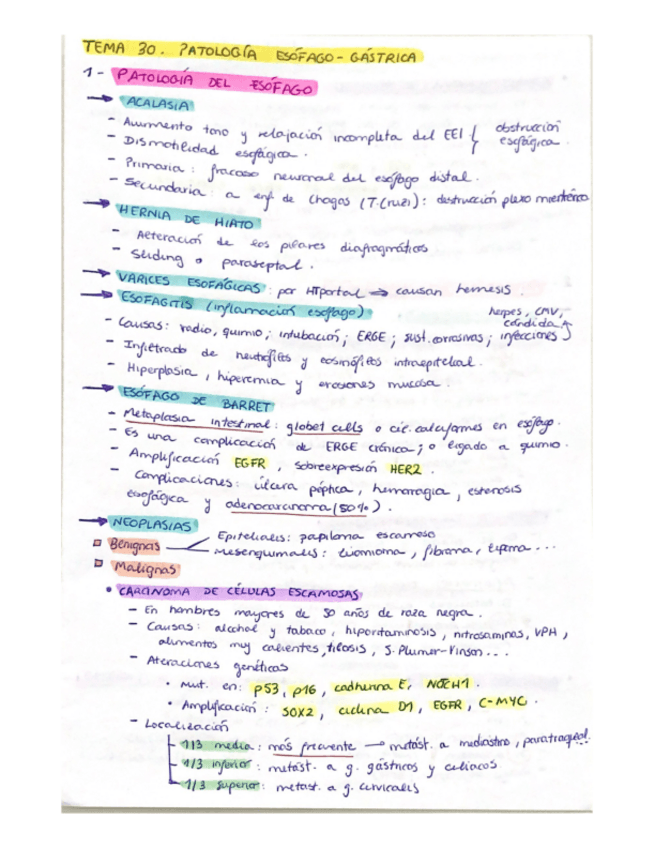 TEMA 30. PATOLOGÍA ESÓFAGO-GÁSTRICA
1- PATOLOGÍA DEL ESÓFAGO
→ ACALASIA
- Aumento tono y relajación incompleta del EEI { obstrucción esofágica.
- Dismotilidad esofágica.
- Primaria: fracaso neuronal del esófago distal.
- Secundaria: a enf de Chagas (T.Cruzi): destrucción plexo mientérico
→ HERNIA DE HIATO
- Alteración de los pilares diafragmáticos
- Sliding o paraseptal.
→ VARICES ESOFÁGICAS: por HTportal ⇒ causan hemesis.
→ ESOFAGITIS (inflamación esófago)
herpes, CMV, cándida
- Causas: radio, quimio; intubación; ERGE; sust. corrosivas; infecciones
- Infiltrado de neutrófilos y eosinófilos intraepitelial.
- Hiperplasia, hiperemia y erosiones mucosa.
→ ESÓFAGO DE BARRET
- Metaplasia intestinal: globet cells o cél. caliciformes en esófago.
- Es una complicación de ERGE crónica; o ligado a quimio.
- Amplificación EGFR, sobreexpresión HER2.
- Complicaciones: úlcera péptica, hemorragia, estenosis
esofágica y adenocarcinoma (50%).
→ NEOPLASIAS
▫ Benignas
Epiteliales: papiloma escamoso
Mesenquimales: leiomioma, fibroma, lipoma ...
▫ Malignas
• CARCINOMA DE CÉLULAS ESCAMOSAS
- En hombres mayores de 50 años de raza negra.
- Causas: alcohol y tabaco, hipovitaminosis, nitrosaminas, VPH,
alimentos muy calientes, tilosis, S. Plumer-Vinson...
- Ateraciones genéticas
• Mut. en: p53, p16, cadherina E, NOCH1.
• Amplificación: SOX2, ciclina D1, EGFR, C-MYC.
- Localización
1/3 media: más frecuente → metást. a mediastino, paratraqueal.
1/3 inferior: metást. a g. gástricos y celíacos
1/3 superior: metast. a g. cervicales